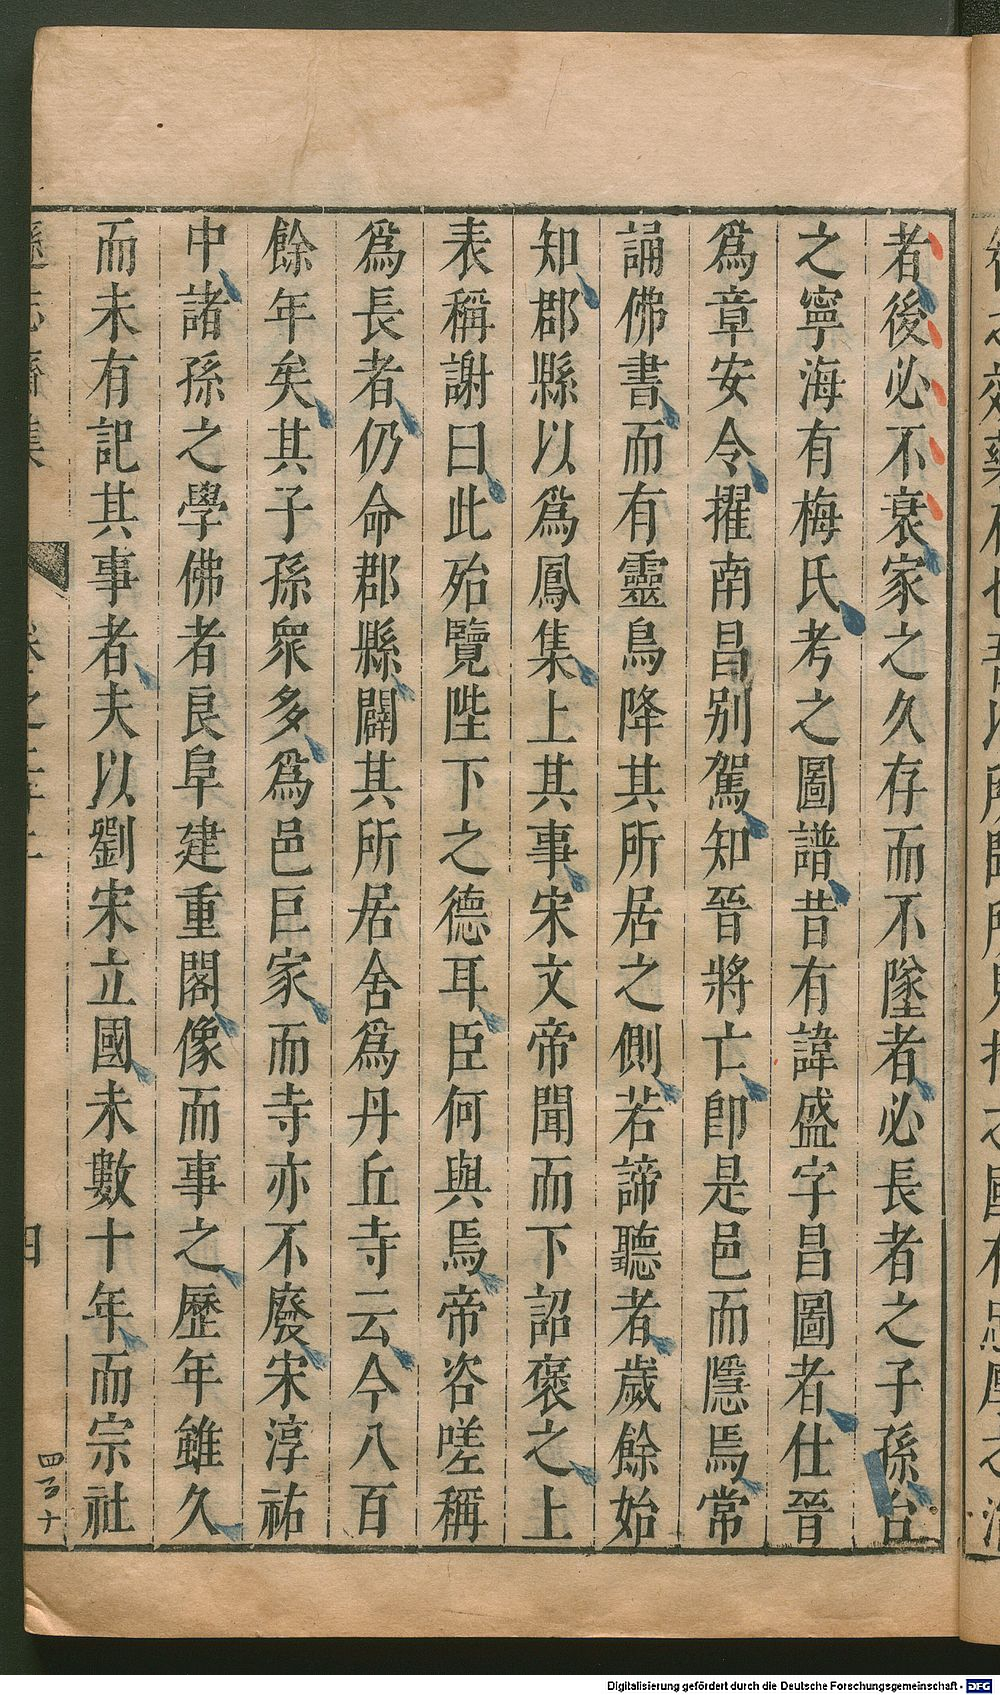 者後必不衰家之久存而不墜者必長者之子孫台
之寧海有梅氏考之圖譜昔有諱盛字昌圖者仕晉
爲章安令擢南昌別駕知晉將亡卽是邑而隱焉常
誦佛書而有靈鳥降其所居之側若諦聽者歲餘始
知郡縣以爲鳳集上其事宋文帝聞而下詔褒之上
表稱謝曰此殆覽陛下之德耳臣何與焉帝咨嗟稱
爲長者仍命郡縣闢其所居舍爲丹丘寺云今八百
餘年矣其子孫衆多爲邑巨家而寺亦不廢宋淳祐
中諸孫之學佛者良阜建重閣像而事之歷年雖久
而未有記其事者夫以劉宋立國未數十年而宗社
四
四百十
Digitalisierung gefördert durch die Deutsche Forschungsgemeinschaft - DFG